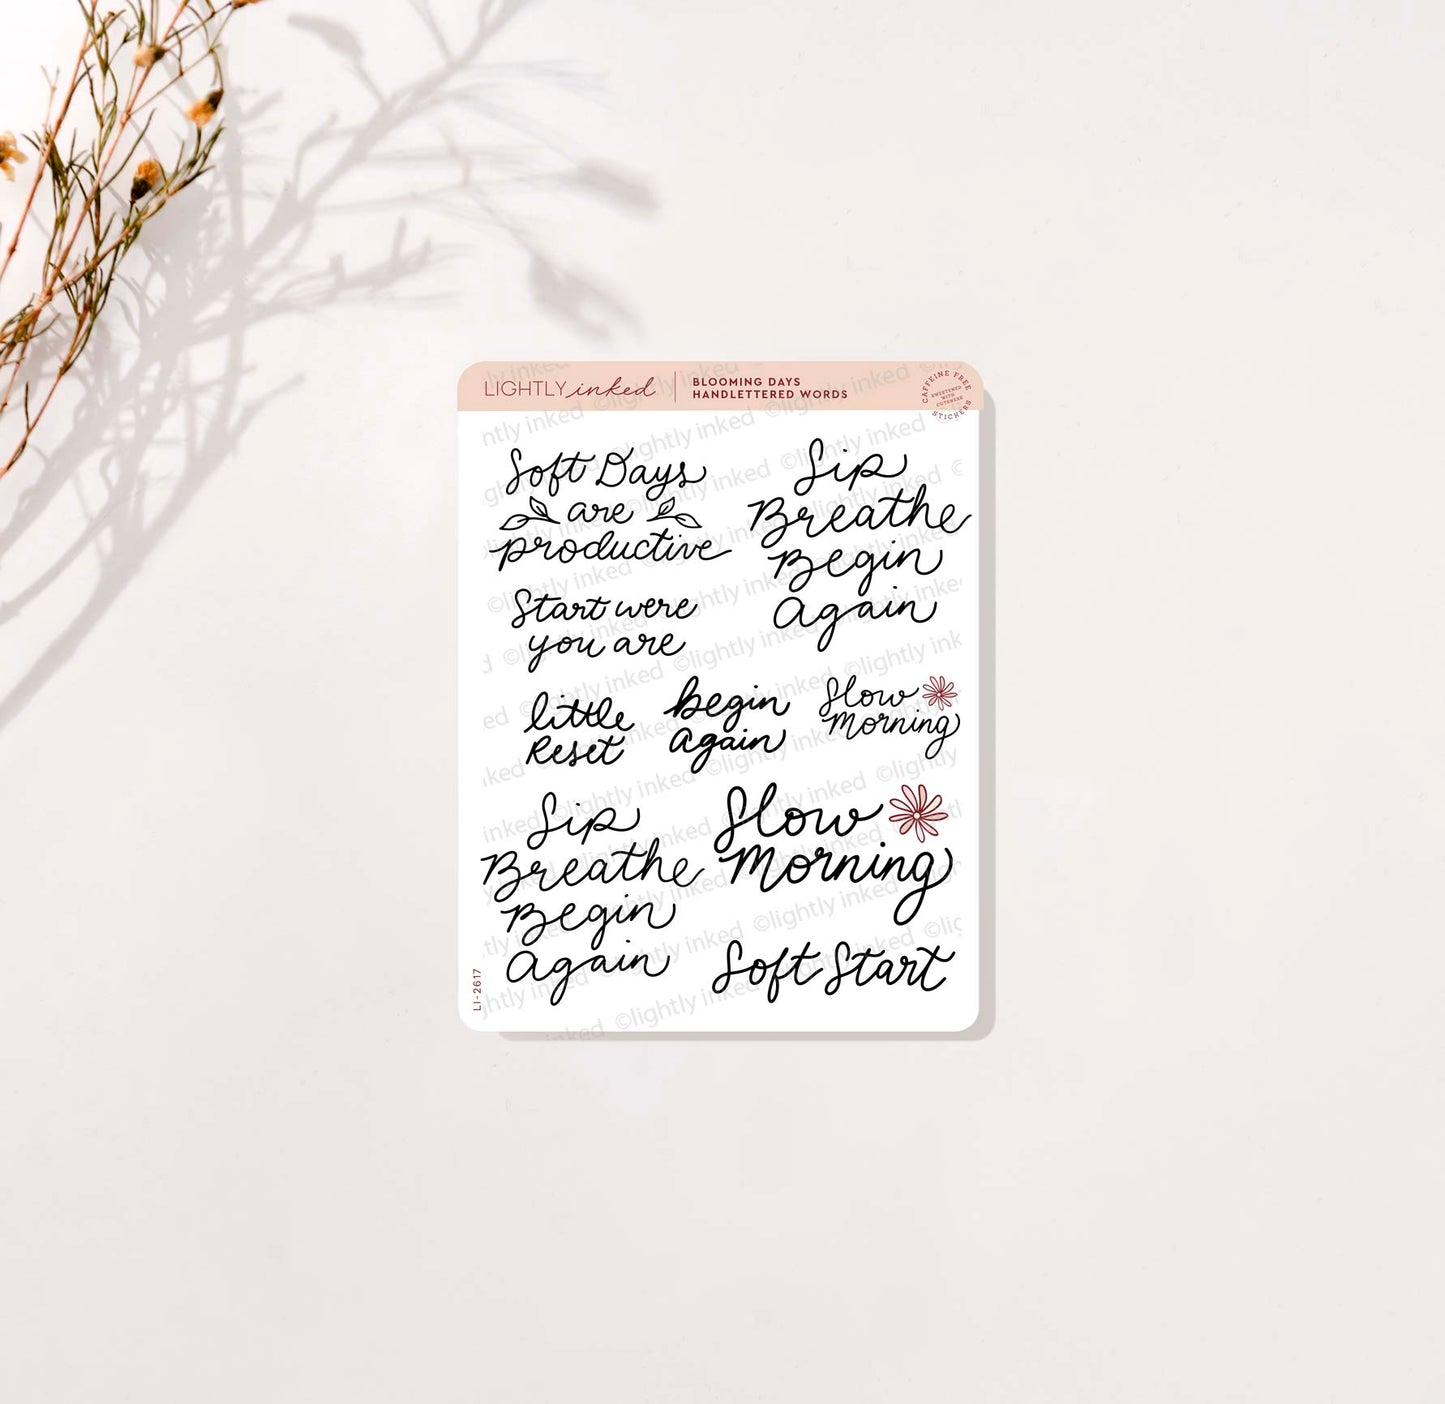 LIGHTLY inked
BLOOMING DAYS
HANDLETTERED WORDS
CAFFEINE FREE
SWEETENED
WITH
CUTENESS
STICKERS
Soft Days
are
productive
Sip
Breathe
Begin
Again
Start were
you are
little
Reset
begin
Again
Slow
Morning
Sip
Breathe
Begin
Again
Slow
Morning
Soft Start
LI-2617
©lightly inked